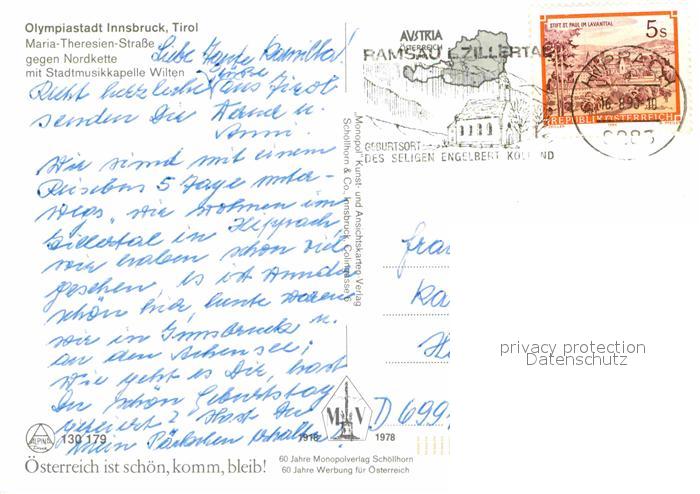 Olympiastadt Innsbruck, Tirol
Maria-Theresien-Straße
gegen Nordkette
mit Stadtmusikkapelle Wilten
Liebe Kamilla!
Recht herzliche Grüsse aus Tirol
senden Dir u.
Wir sind mit einem
Reisebus 5 Tage unter-
wegs, wir wohnen im
Zillertal in Hippach
wir haben schon viel
gesehen, es ist
schön hier, heute waren
wir in Innsbruck u.
an den Achensee;
Wie geht es Dir, hast
Du schön Geburtstag
gefeiert? Hast Du
mein Päckchen erhalten
ALPINA
130 179
Österreich ist schön, komm, bleib!
"Monopol" Kunst- und Ansichtskarten-Verlag
Schöllhorn & Co., Innsbruck, Colingasse 6
M V
1918 1978
60 Jahre Monopolverlag Schöllhorn
60 Jahre Werbung für Österreich
AUSTRIA
ÖSTERREICH
RAMSAU I. ZILLERTAL
GEBURTSORT
DES SELIGEN ENGELBERT KOLLAND
STIFT ST. PAUL IM LAVANTTAL
5 S
REPUBLIK ÖSTERREICH
HIPPACH
16.-8.90-10
6283
Frau
Ka
D 699
privacy protection
Datenschutz